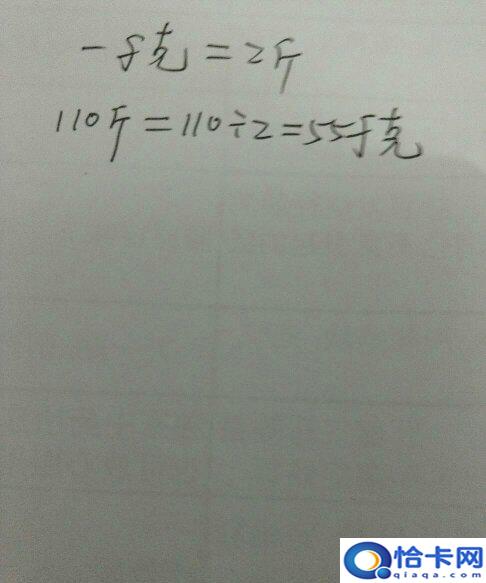 一千克=2斤
110斤=110÷2=55千克
恰卡网
qiaqa.com